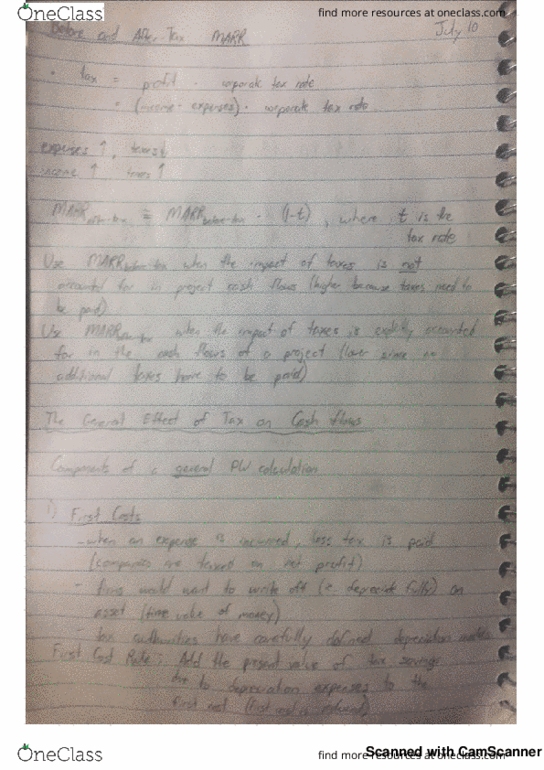 OneClass
find more resources at oneclass.com
Before and After-Tax MARR
July 10
• tax = profit · corporate tax rate
= (income - expenses) · corporate tax rate
expenses ↑, taxes ↓
income ↑ taxes ↑
MARR after-tax = MARR before-tax · (1-t), where t is the
tax rate
Use MARR before-tax when the impact of taxes is not
accounted for in project cash flows (higher because taxes need to
be paid)
Use MARR after-tax when the impact of taxes is explicitly accounted
for in the cash flows of a project (lower since no
additional taxes have to be paid)
The General Effect of Tax on Cash flows
Components of a general PW calculation
1) First Costs
- when an expense is incurred, less tax is paid
(companies are taxed on net profit)
- firms would want to write off (ie. depreciate fully) an
asset (time value of money)
- tax authorities have carefully defined depreciation
First Cost Rule: Add the present value of tax savings
due to depreciation expenses to the
first cost (first cost is reduced)
OneClass
find more resources at oneclass.com
Scanned with CamScanner